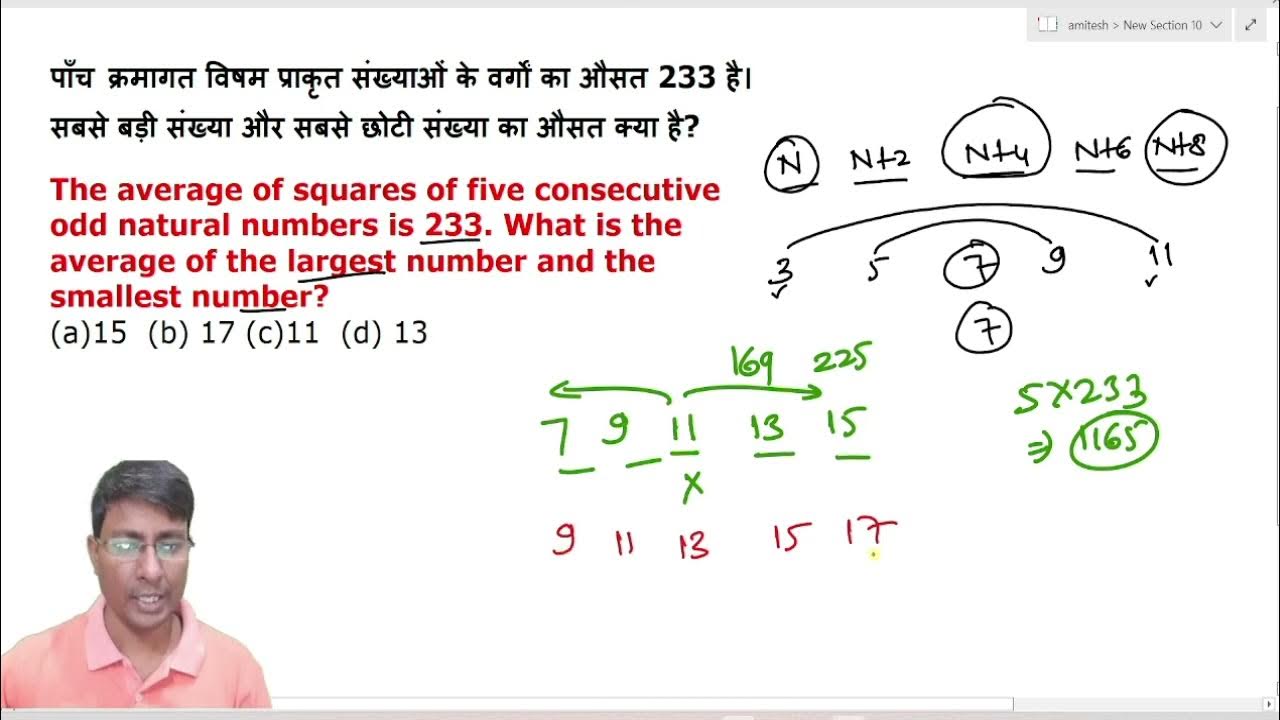 amitesh > New Section 10
पाँच क्रमागत विषम प्राकृत संख्याओं के वर्गों का औसत 233 है।
सबसे बड़ी संख्या और सबसे छोटी संख्या का औसत क्या है?
The average of squares of five consecutive
odd natural numbers is 233. What is the
average of the largest number and the
smallest number?
(a)15 (b) 17 (c)11 (d) 13
N N+2 N+4 N+6 N+8
3 5 7 9 11
7
169 225
7 9 11 13 15
x
9 11 13 15 17
5x233
⇒ 1165